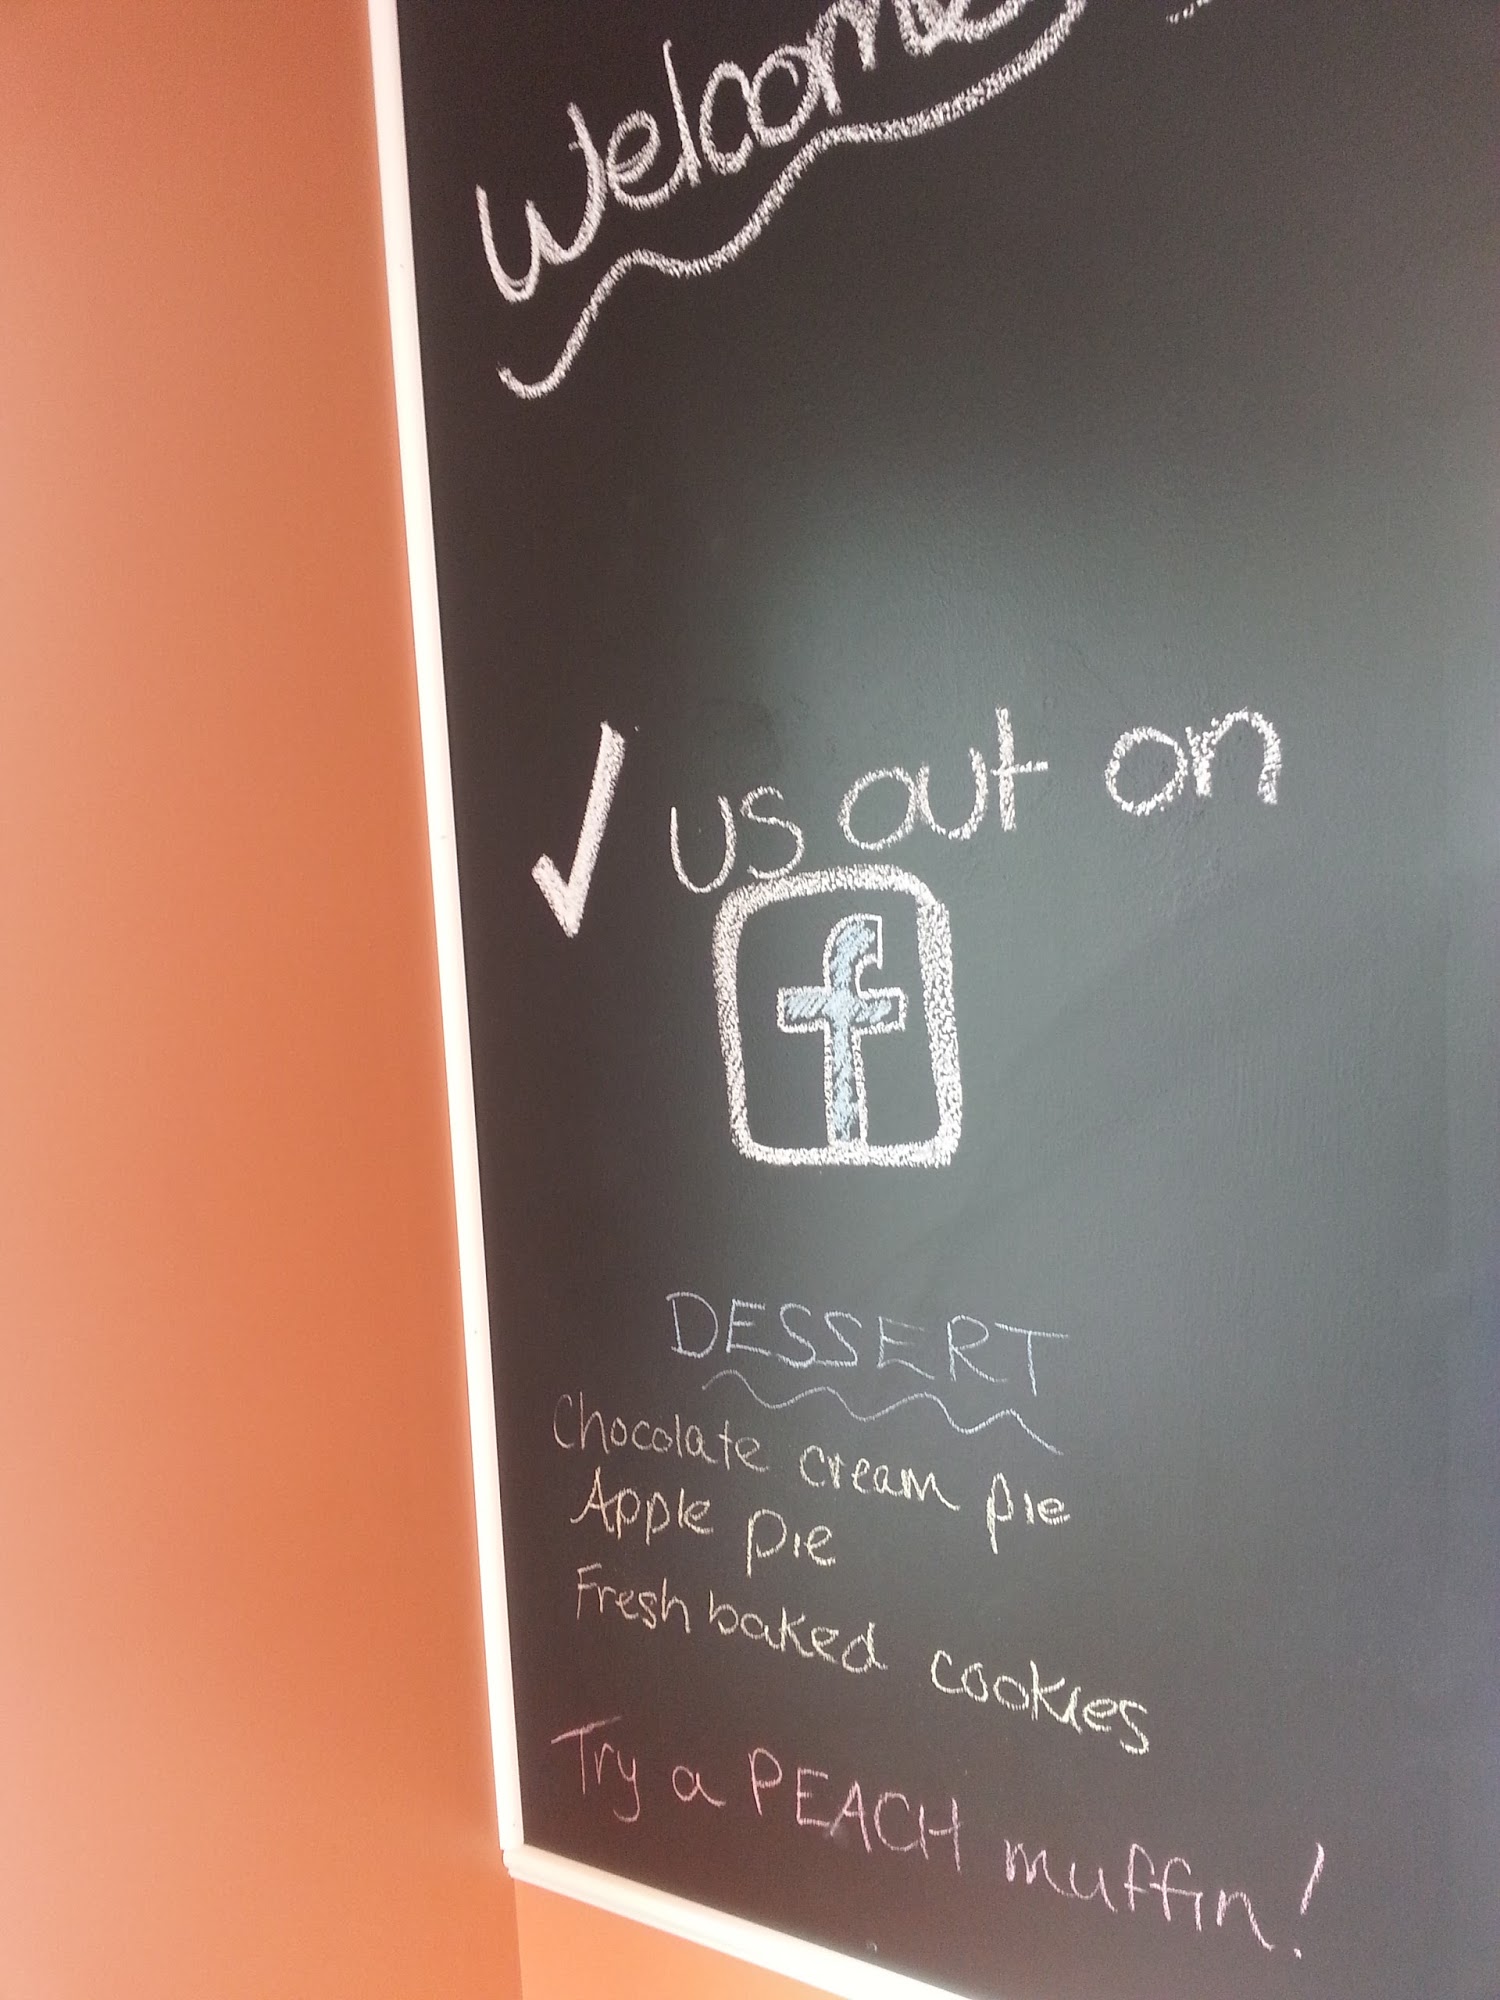 Welcome
✓ us out on
f
DESSERT
Chocolate cream pie
Apple pie
Fresh baked cookies
Try a PEACH muffin!